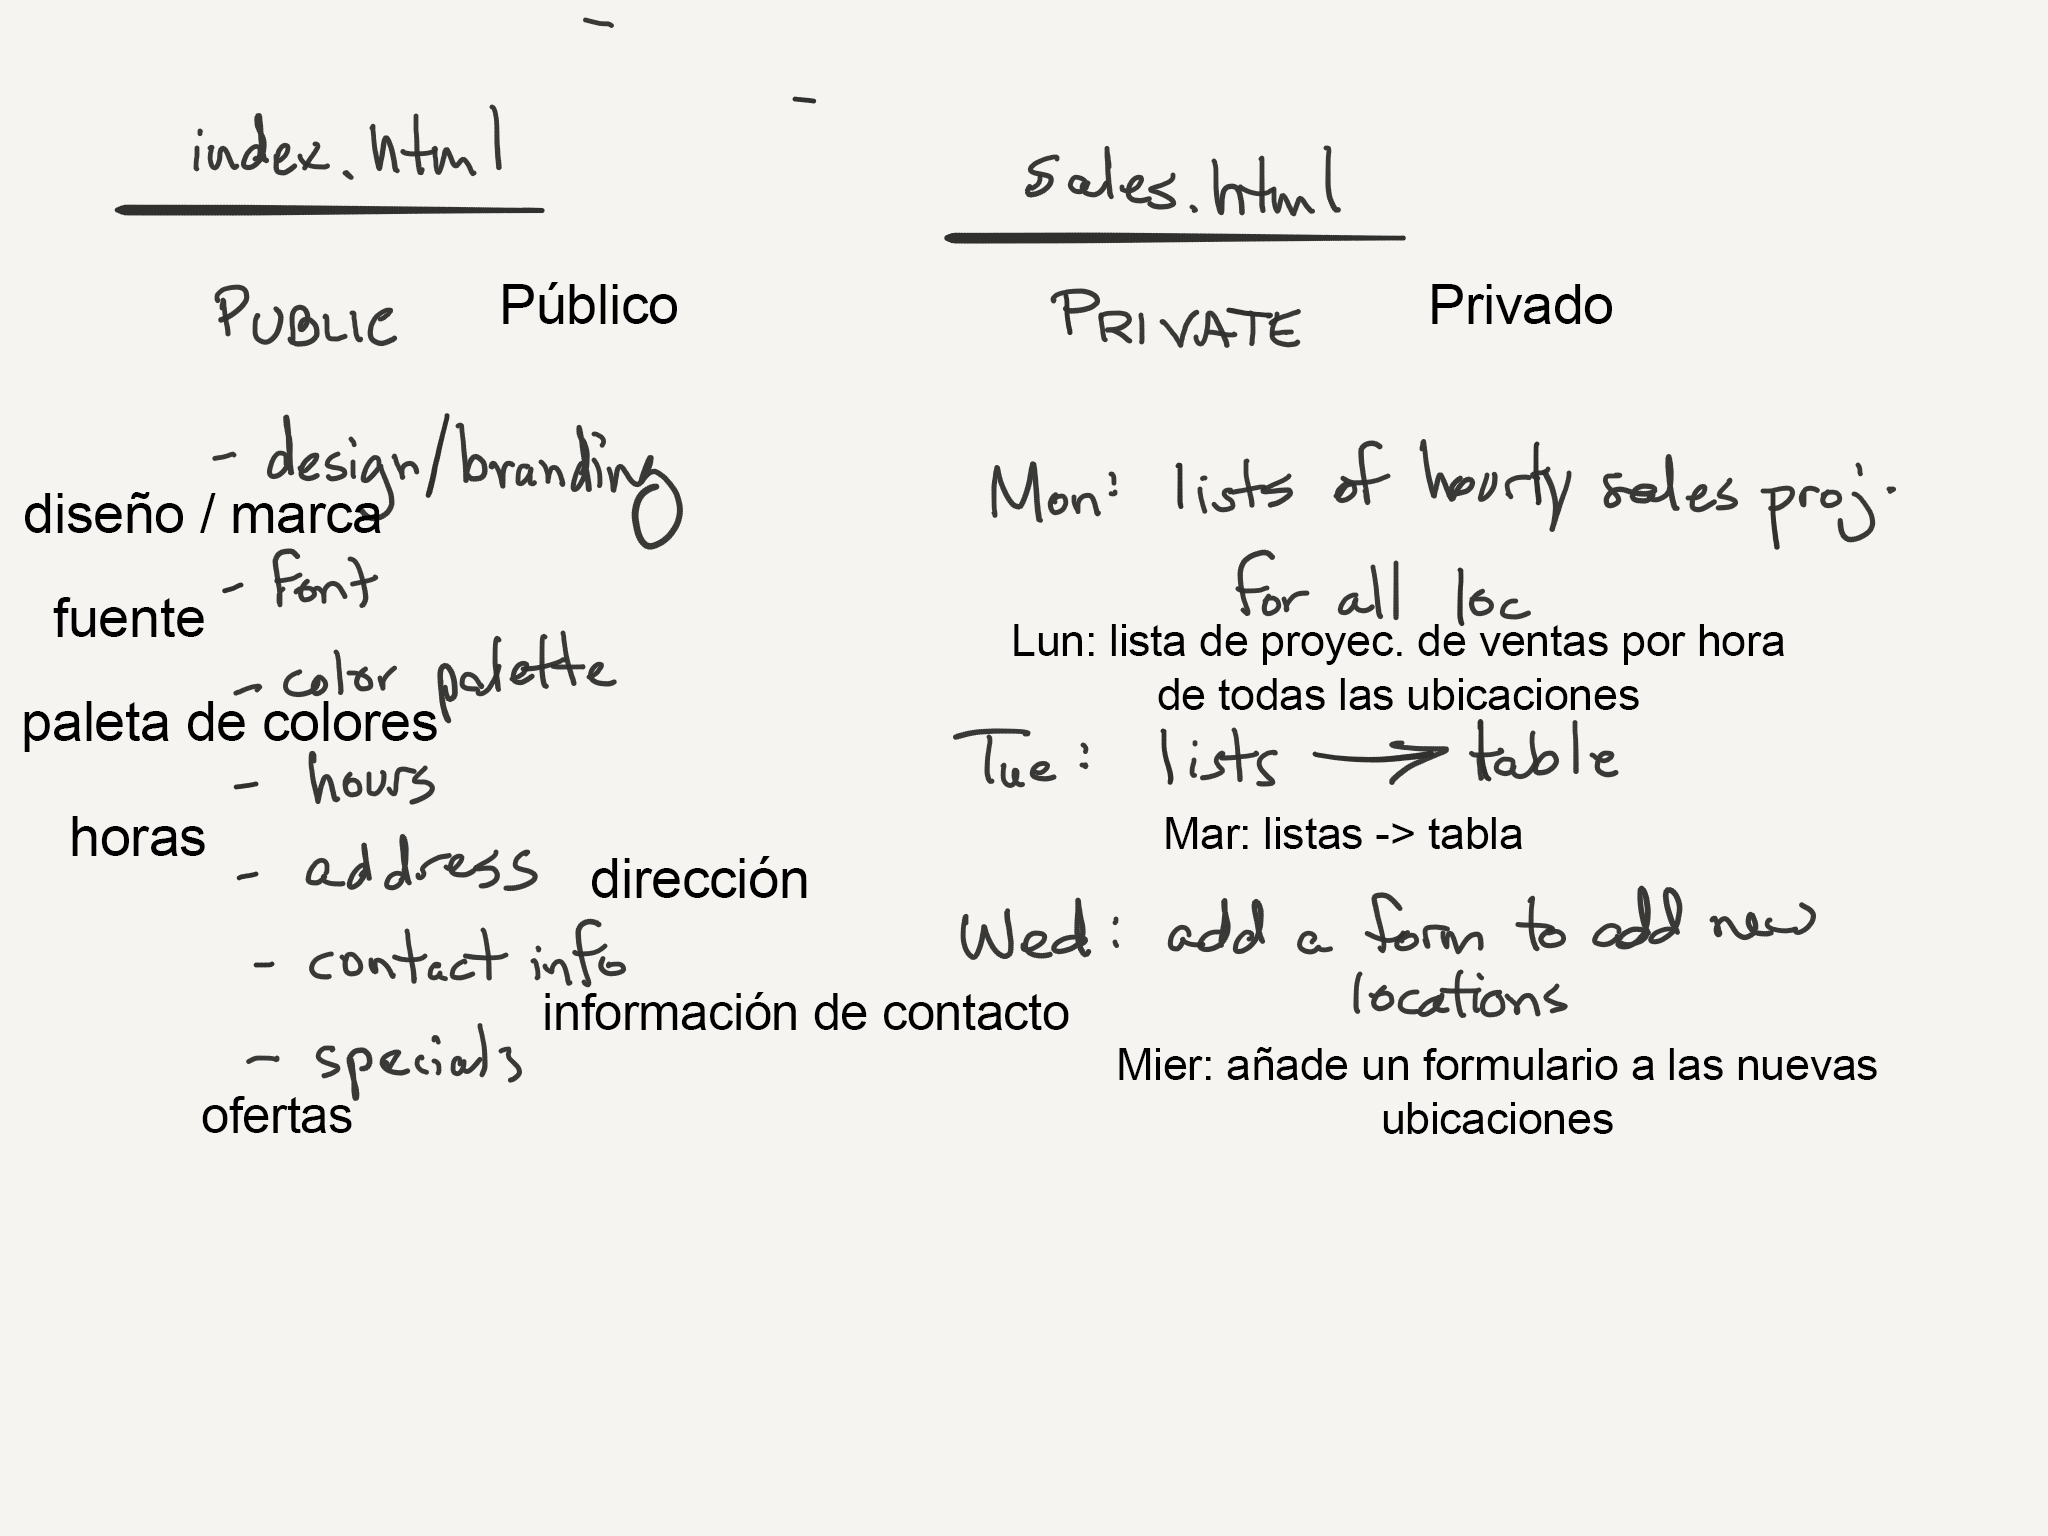 index.html
PUBLIC Público
- design/branding
diseño / marca
- font
fuente
- color palette
paleta de colores
- hours
horas
- address dirección
- contact info
información de contacto
- specials
ofertas
sales.html
PRIVATE Privado
Mon: lists of hourly sales proj.
for all loc
Lun: lista de proyec. de ventas por hora
de todas las ubicaciones
Tue: lists → table
Mar: listas -> tabla
Wed: add a form to add new
locations
Mier: añade un formulario a las nuevas
ubicaciones